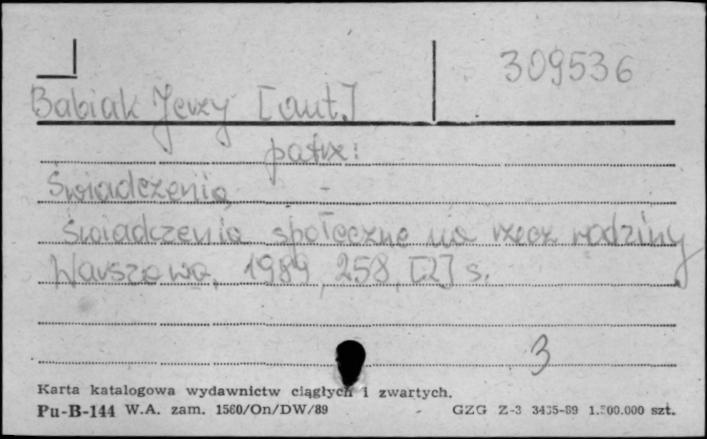 309536
Babiak Jerzy [aut.]
patrz:
Świadczenia
Świadczenia społeczne na rzecz rodziny
Warszawa, 1989, 258, [2] s.
3
Karta katalogowa wydawnictw ciągłych i zwartych.
Pu-B-144 W.A. zam. 1560/On/DW/89 GZG Z-3 3435-89 1.500.000 szt.